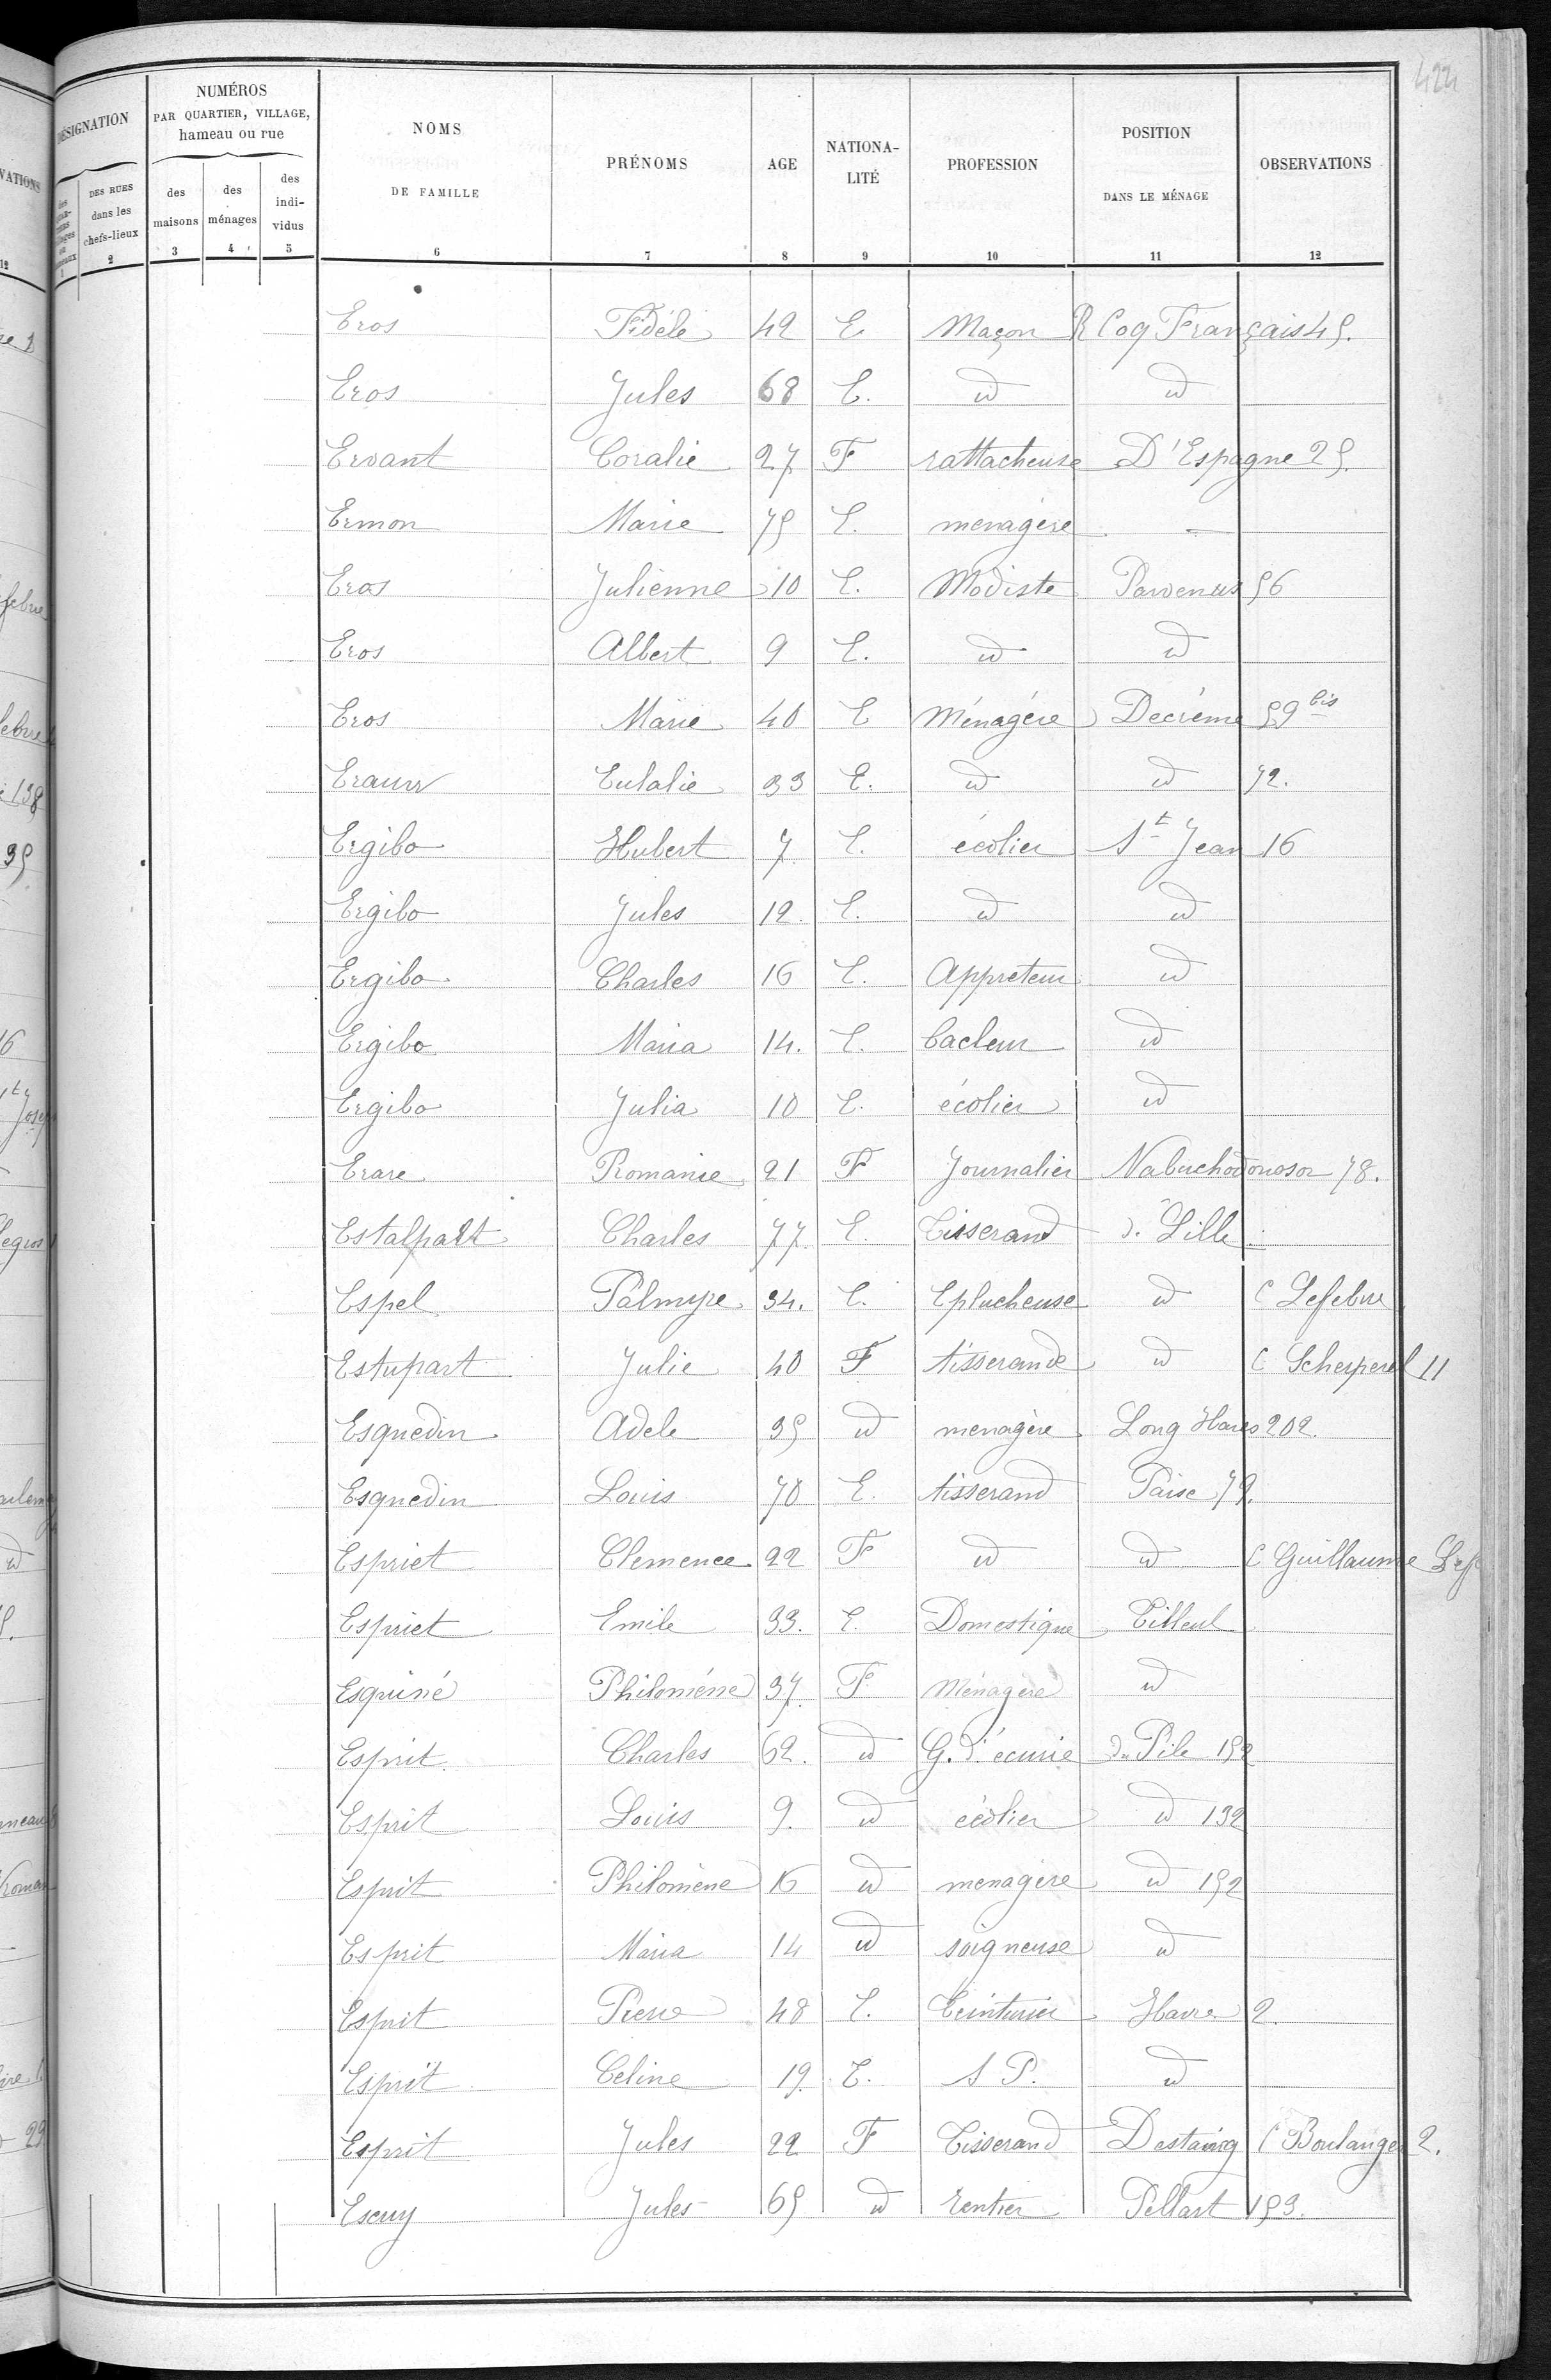 424
DÉSIGNATION
DES RUES
dans les
chefs-lieux
2
NUMÉROS
PAR QUARTIER, VILLAGE,
hameau ou rue
des
maisons
3
des
ménages
4
des
indi-
vidus
5
NOMS
DE FAMILLE
6
PRÉNOMS
7
AGE
8
NATIONA-
LITÉ
9
PROFESSION
10
POSITION
DANS LE MÉNAGE
11
OBSERVATIONS
12
Eros Fidèle 42 E Maçon R Coq Français 45.
Eros Jules 68 E. id id
Ervant Coralie 27 F rattacheuse D'Espagne 25.
Ermon Marie 75 E. menagère -
Eros Julienne 10 E. Modiste Parvenus 56
Eros Albert 9 E. id id
Eros Marie 40 E Ménagére Decrème 59 bis
Eulalie 33 E. id id 72.
Ergibo Hubert 7 E. écolier St Jean 16
Ergibo Jules 12. E. id id
Ergibo Charles 16 E. Appreteur id
Ergibo Maria 14. E. bacleur id
Ergibo Julia 10 E. écolier id
Erare Romanie 21 F Journalier Nabuchodonosor 78.
Estalpart Charles 77. E. Tisserand d. Lille
Espel Palmyre 34. E. Eplucheuse id C Lefebvre
Estupart Julie 40 F tisserande id C Scherperel 11
Esquedin Adele 35 id menagère Long Haies 202.
Esquedin Louis 70 E. tisserand Paise 79.
Espriet Clemence 22 F id id C Guillaume
Espriet Emile 33. E. Domestique Tilleul
Esquiné Philoméne 37. F Ménagère id
Esprit Charles 62. id G. d'écurie du Pile 152
Esprit Louis 9. id écolier id 132
Esprit Philomène 16 id menagère id 152
Esprit Maria 14 id soigneuse id
Esprit Pierre 48 E. Teinturier Havre 2.
Esprit Celine 19. E. S P. id
Esprit Jules 22 F Tisserand Destaing C Boulanger 2.
Escuy Jules 65 id rentier Pellart 153.